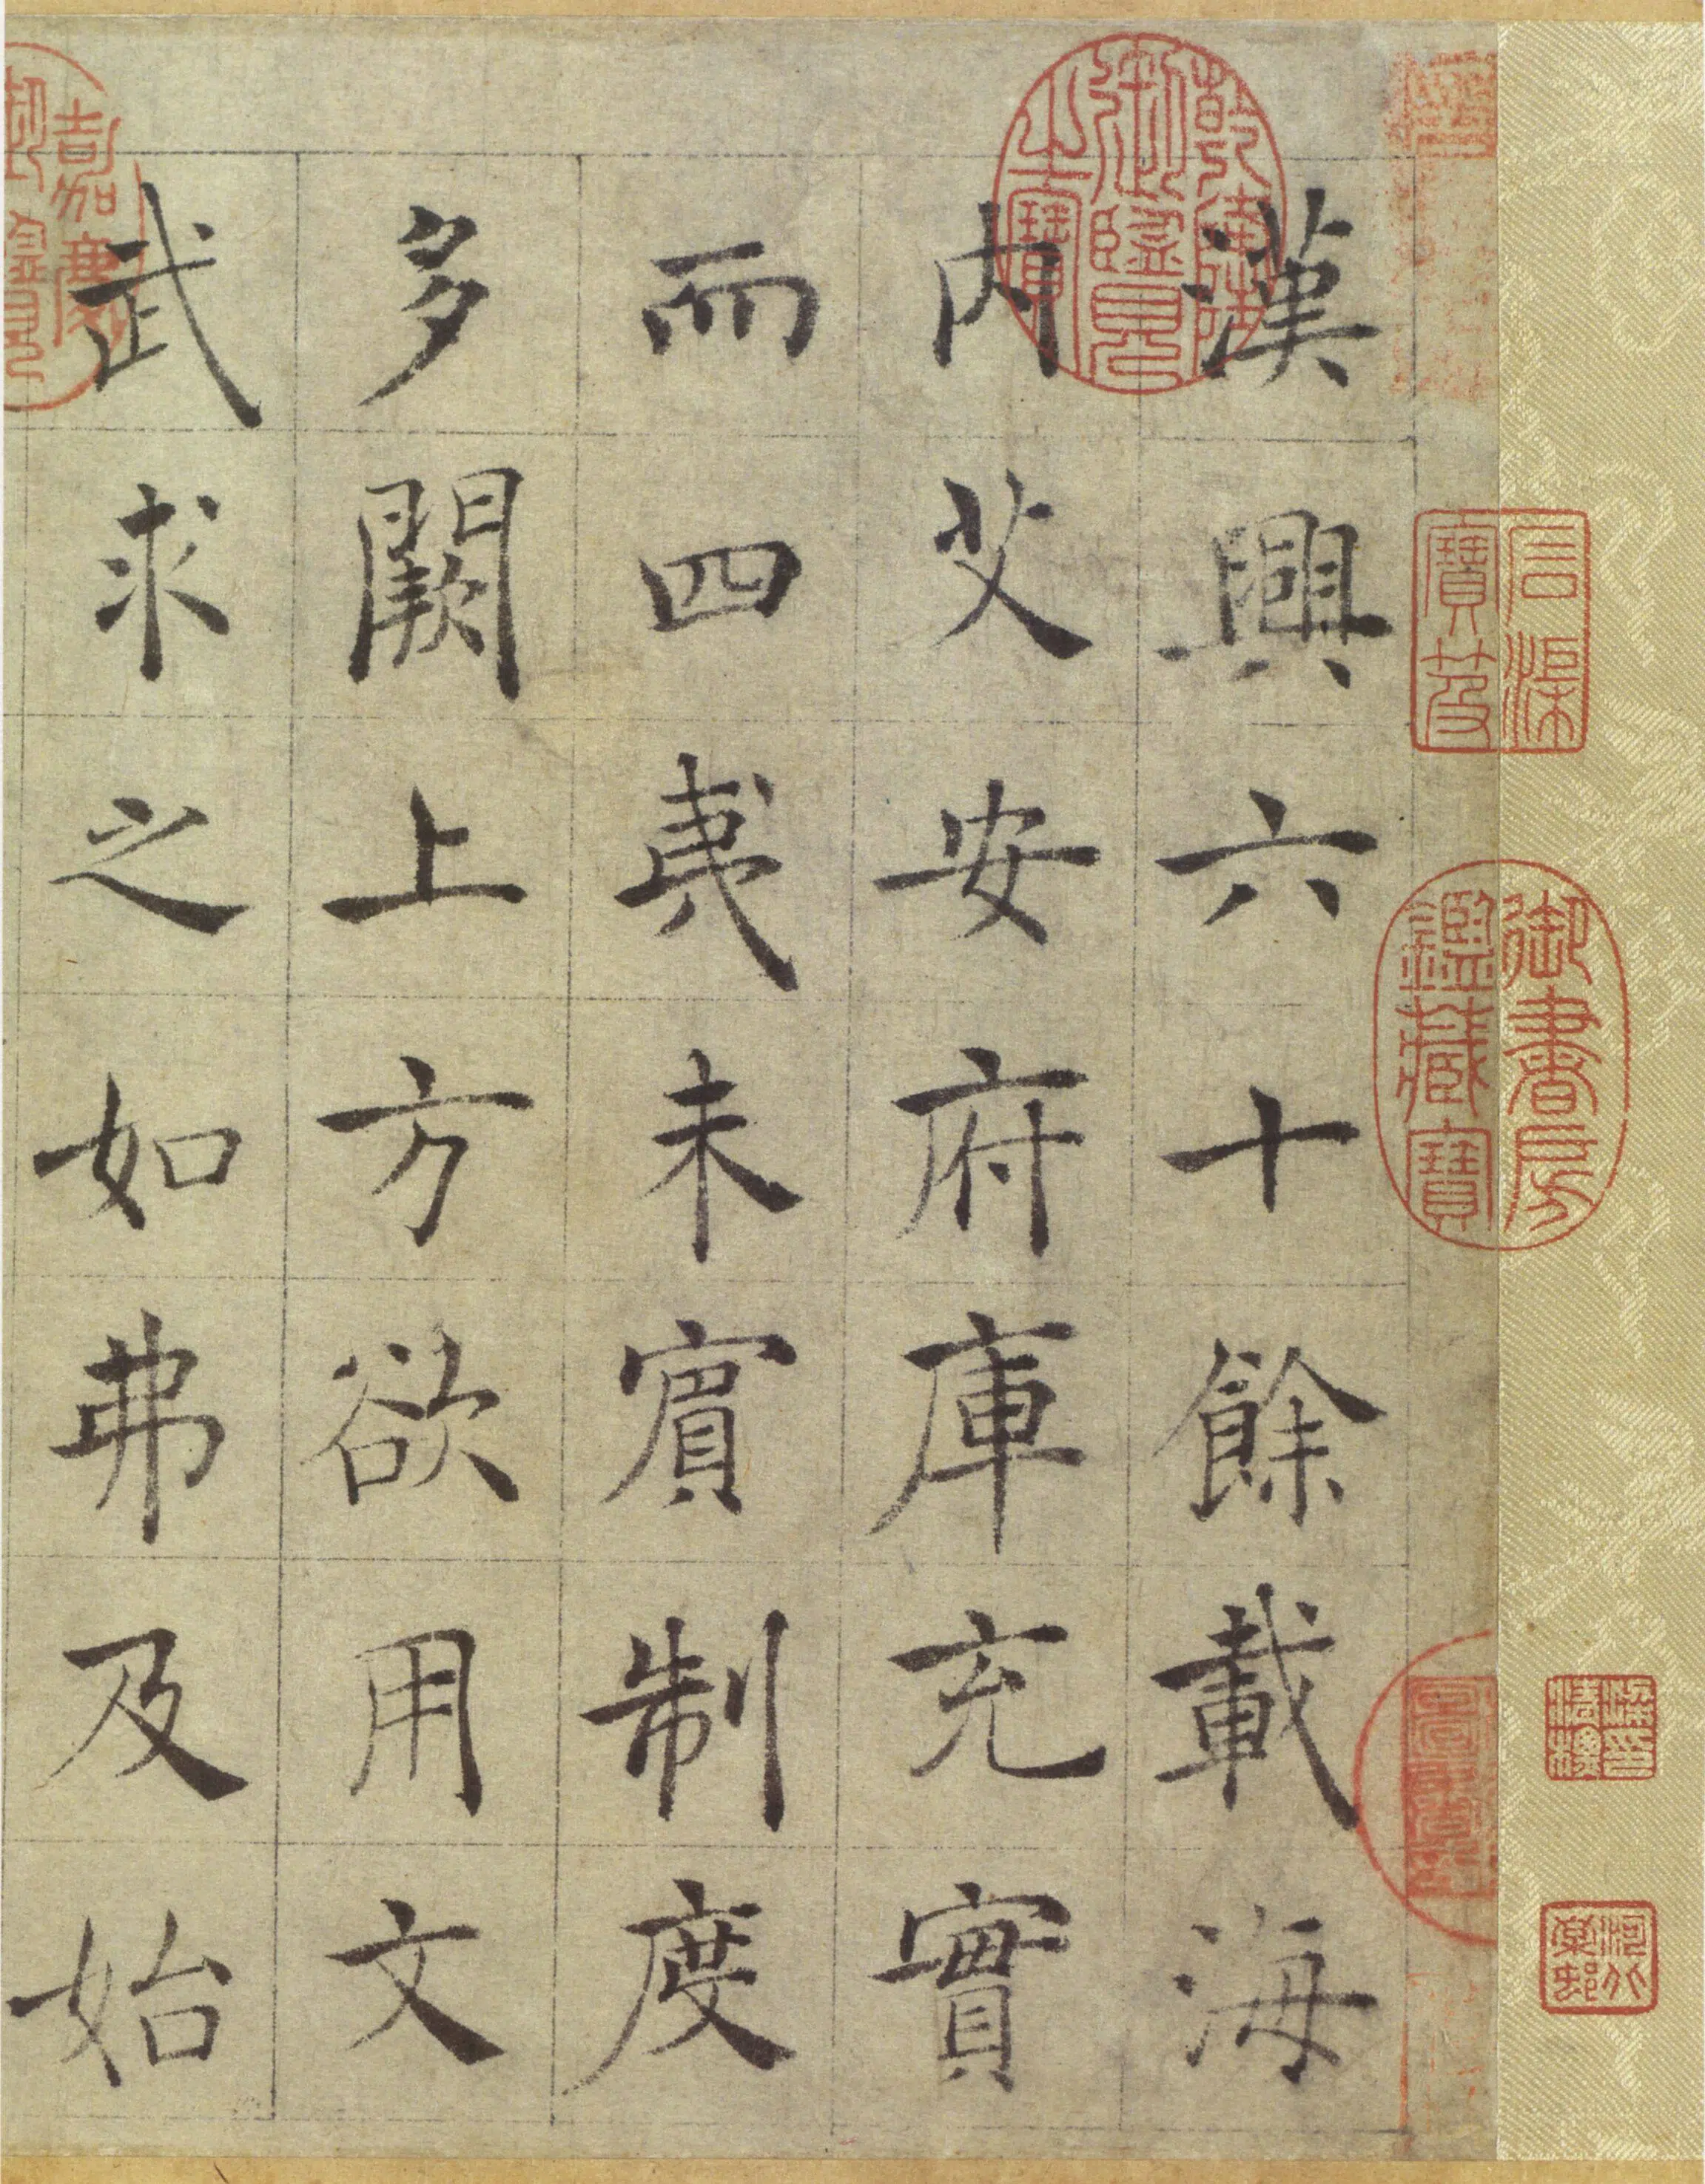 漢興六十餘載海
內艾安府庫充實
而四夷未賓制度
多闕上方欲用文
武求之如弗及始
乾隆御覽之寶
石渠寶笈
御書房鑑藏寶
嘉慶御覽